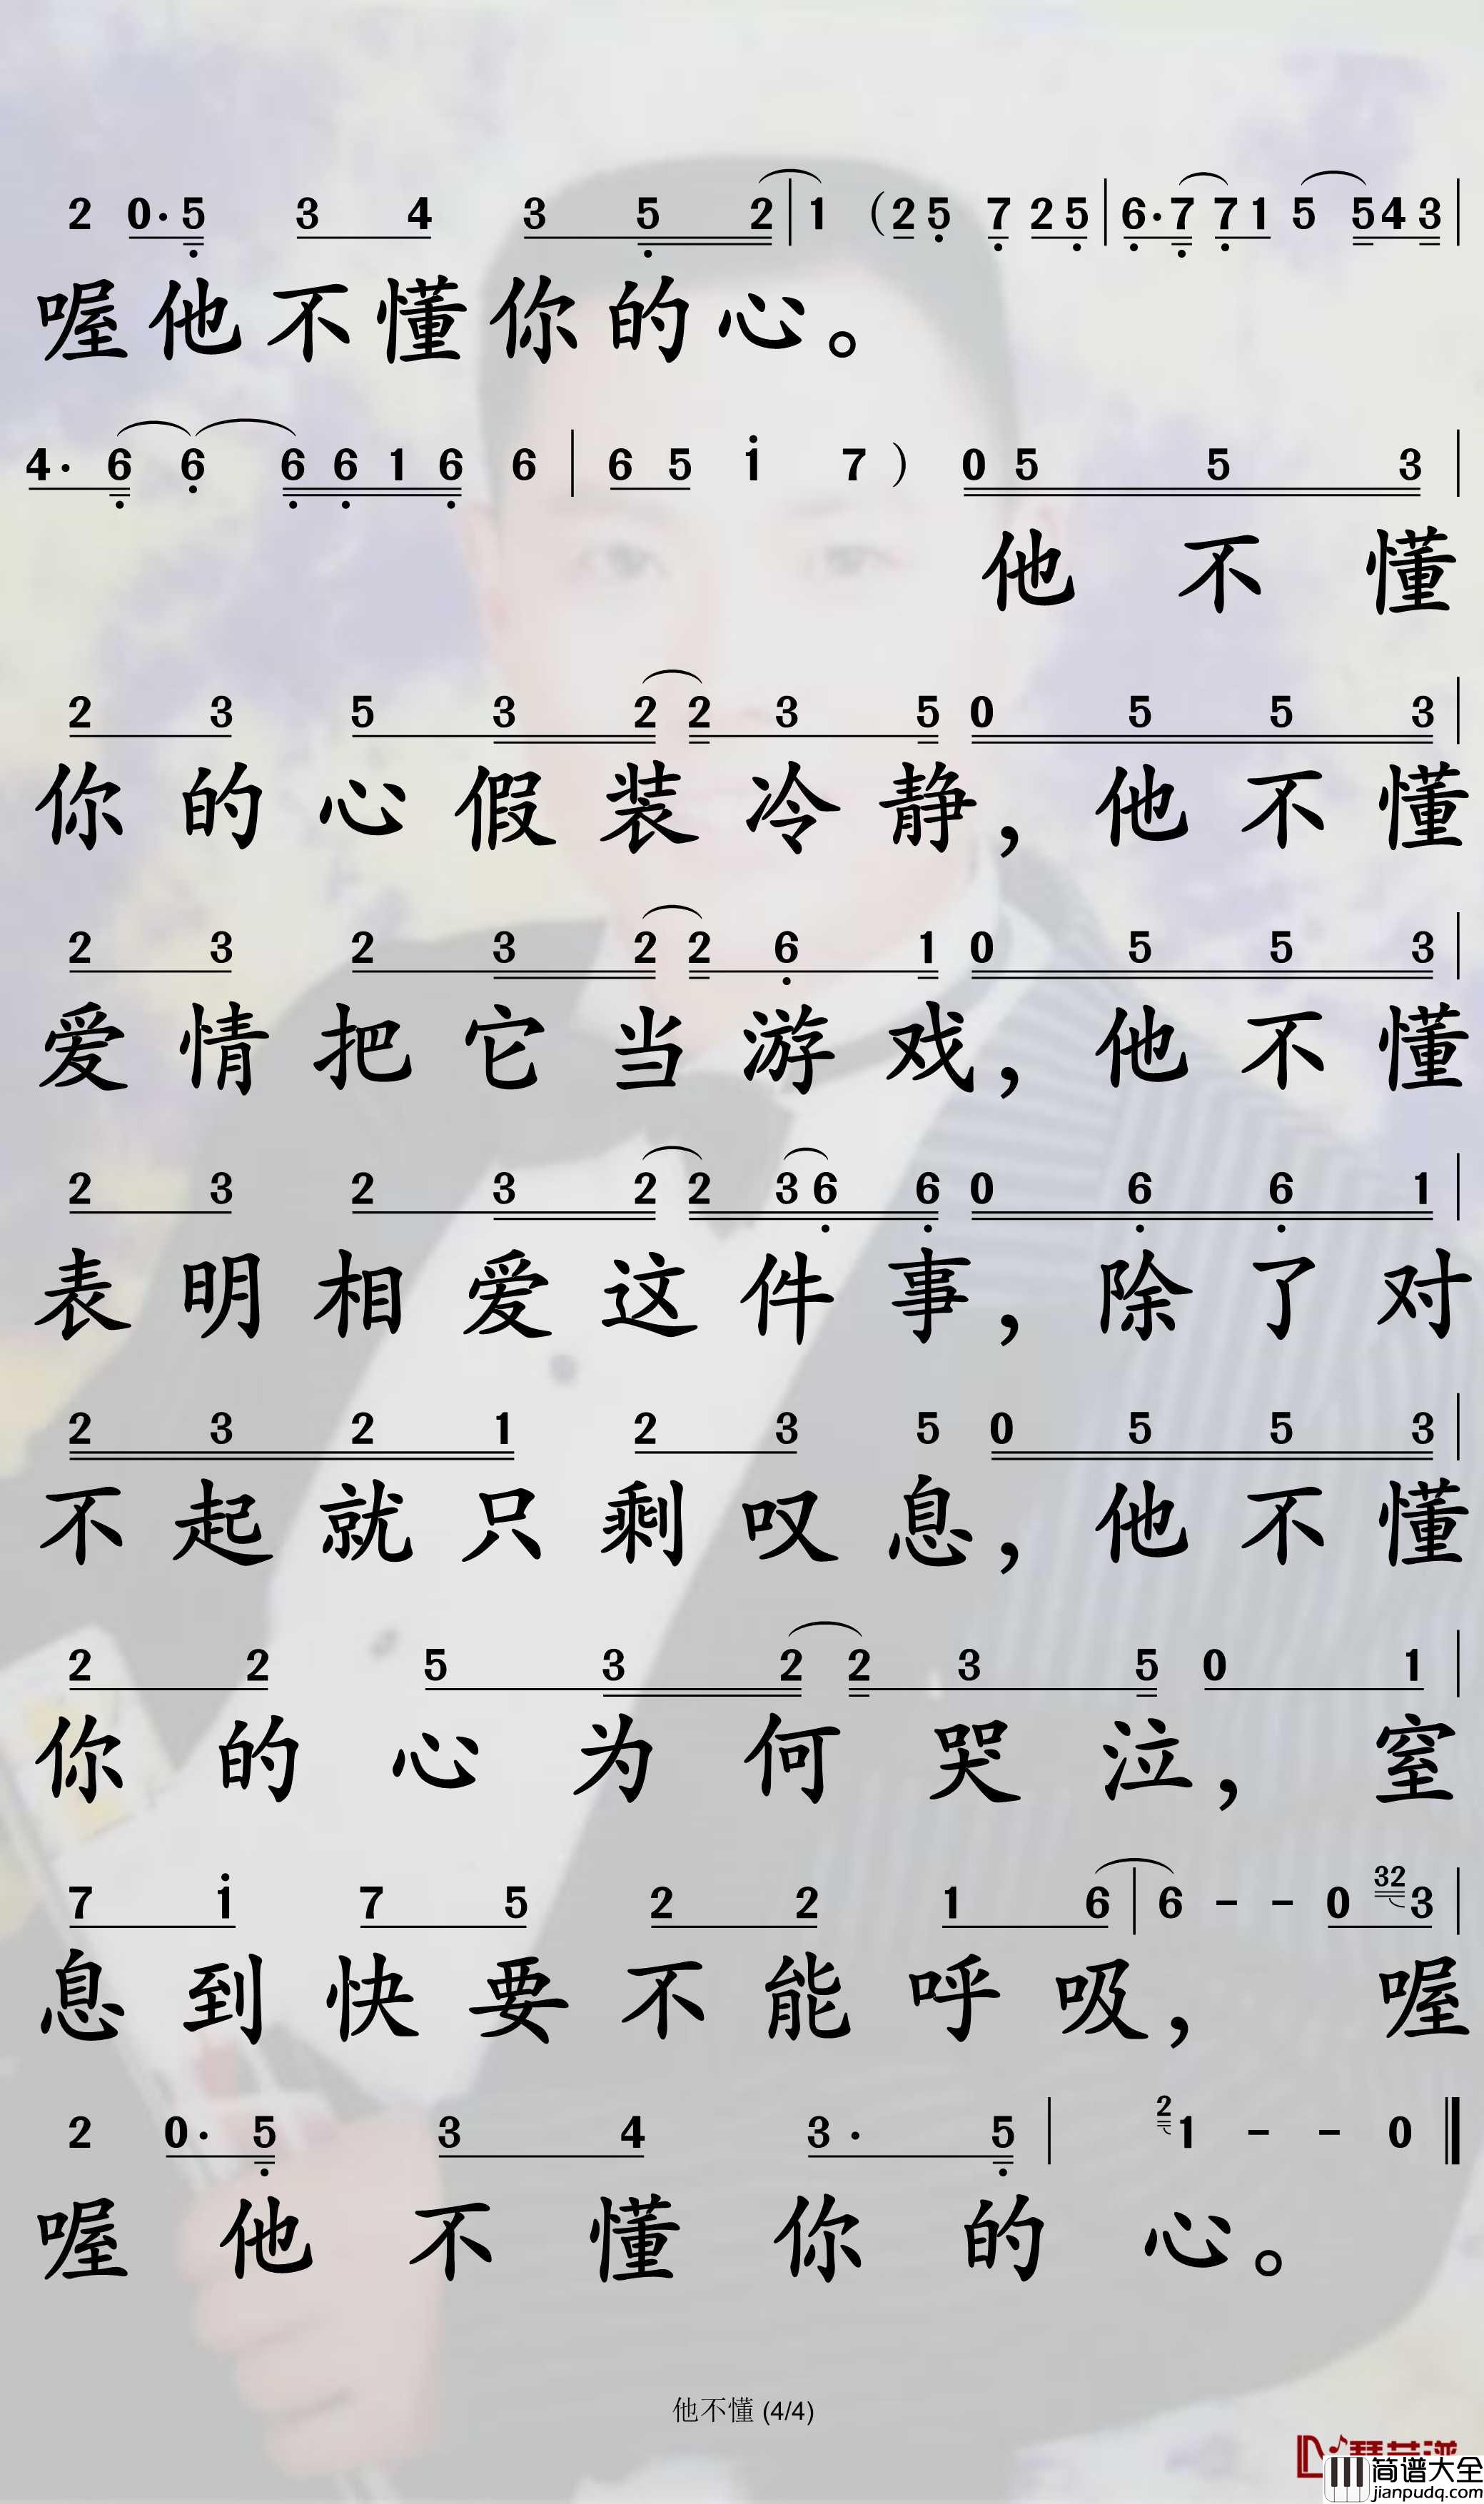 2 0· 5 3 4 3 5 2 | 1 ( 2 5 7 2 5 | 6· 7 7 1 5 5 4 3 |
喔他不懂你的心。
4· 6 6 6 6 1 6 6 | 6 5 i 7 ) 0 5 5 3 |
他不懂
2 3 5 3 2 2 3 5 0 5 5 3 |
你的心假装冷静，他不懂
2 3 2 3 2 2 6 1 0 5 5 3 |
爱情把它当游戏，他不懂
2 3 2 3 2 2 3 6 6 0 6 6 1 |
表明相爱这件事，除了对
2 3 2 1 2 3 5 0 5 5 3 |
不起就只剩叹息，他不懂
2 2 5 3 2 2 3 5 0 1 |
你的心为何哭泣，窒
7 i 7 5 2 2 1 6 | 6 - - 0 32 3 |
息到快要不能呼吸，喔
2 0· 5 3 4 3· 5 | 2 1 - - 0 ‖
喔他不懂你的心。
他不懂 (4/4)
简谱大全
jianpudq.com